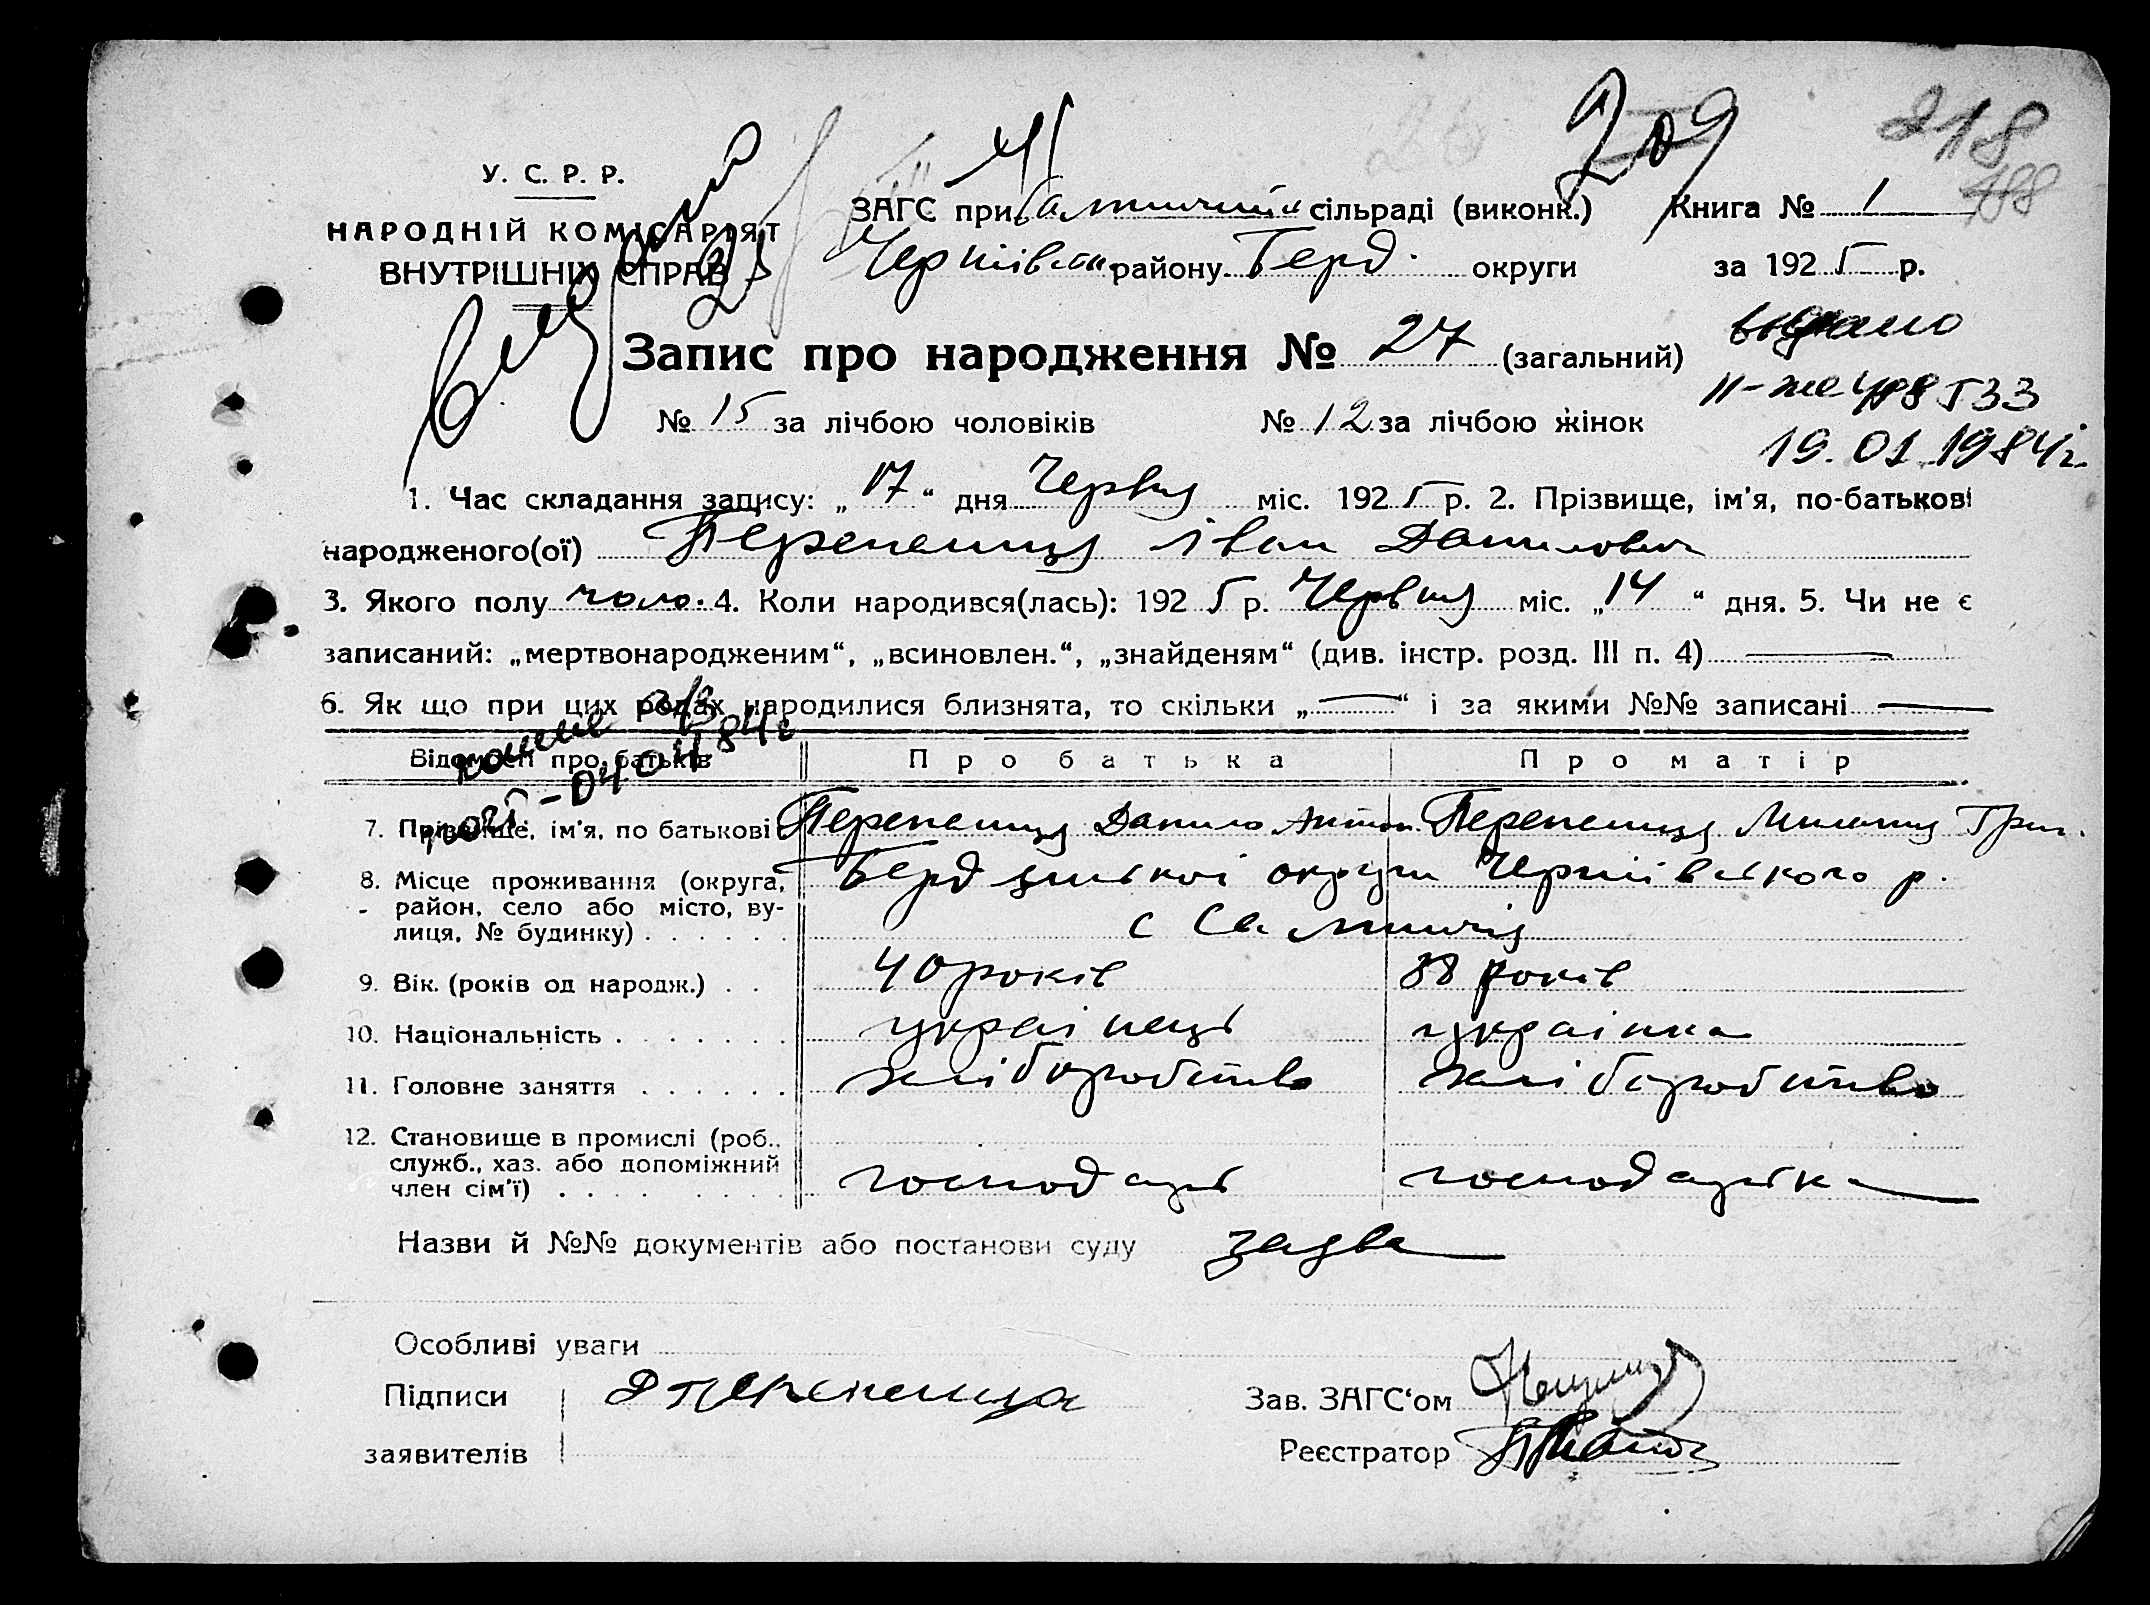 209
218
188
У. С. Р. Р.
НАРОДНІЙ КОМІСАРІЯТ
ВНУТРІШНІХ СПРАВ
ЗАГС при сільраді (виконк.) Книга № 1
району Берд. округи за 1925 р.
Запис про народження № 27 (загальний)
видано
11-же 418533
19.01.1984г.
№ 15 за лічбою чоловіків № 12 за лічбою жінок
1. Час складання запису: „17“ дня Червня міс. 1925 р. 2. Прізвище, ім'я, по-батькові
народженого(ої) Перепелиця Іван Данилович
3. Якого полу чоло. 4. Коли народився(лась): 1925 р. Червня міс. „14“ дня. 5. Чи не є
записаний: „мертвонародженим“, „всиновлен.“, „знайденям“ (див. інстр. розд. III п. 4)
6. Як що при цих родах народилися близнята, то скільки „—“ і за якими №№ записані —
04 04 84г
Відомості про батьків Про батька Про матір
7. Прізвище, ім'я, по батькові Перепелиця Данило Антон. Перепелиця Григ.
8. Місце проживання (округа, район, село або місто, вулиця, № будинку) Бердицької округи р.
с
9. Вік. (років од народж.) 40 років 38 років
10. Національність українець українка
11. Головне заняття хліборобство хліборобство
12. Становище в промислі (роб., служб., хаз. або допоміжний член сім'ї) господарь господарька
Назви й №№ документів або постанови суду заява
Особливі уваги
Підписи Д Перепелица Зав. ЗАГС'ом
заявителів Реєстратор